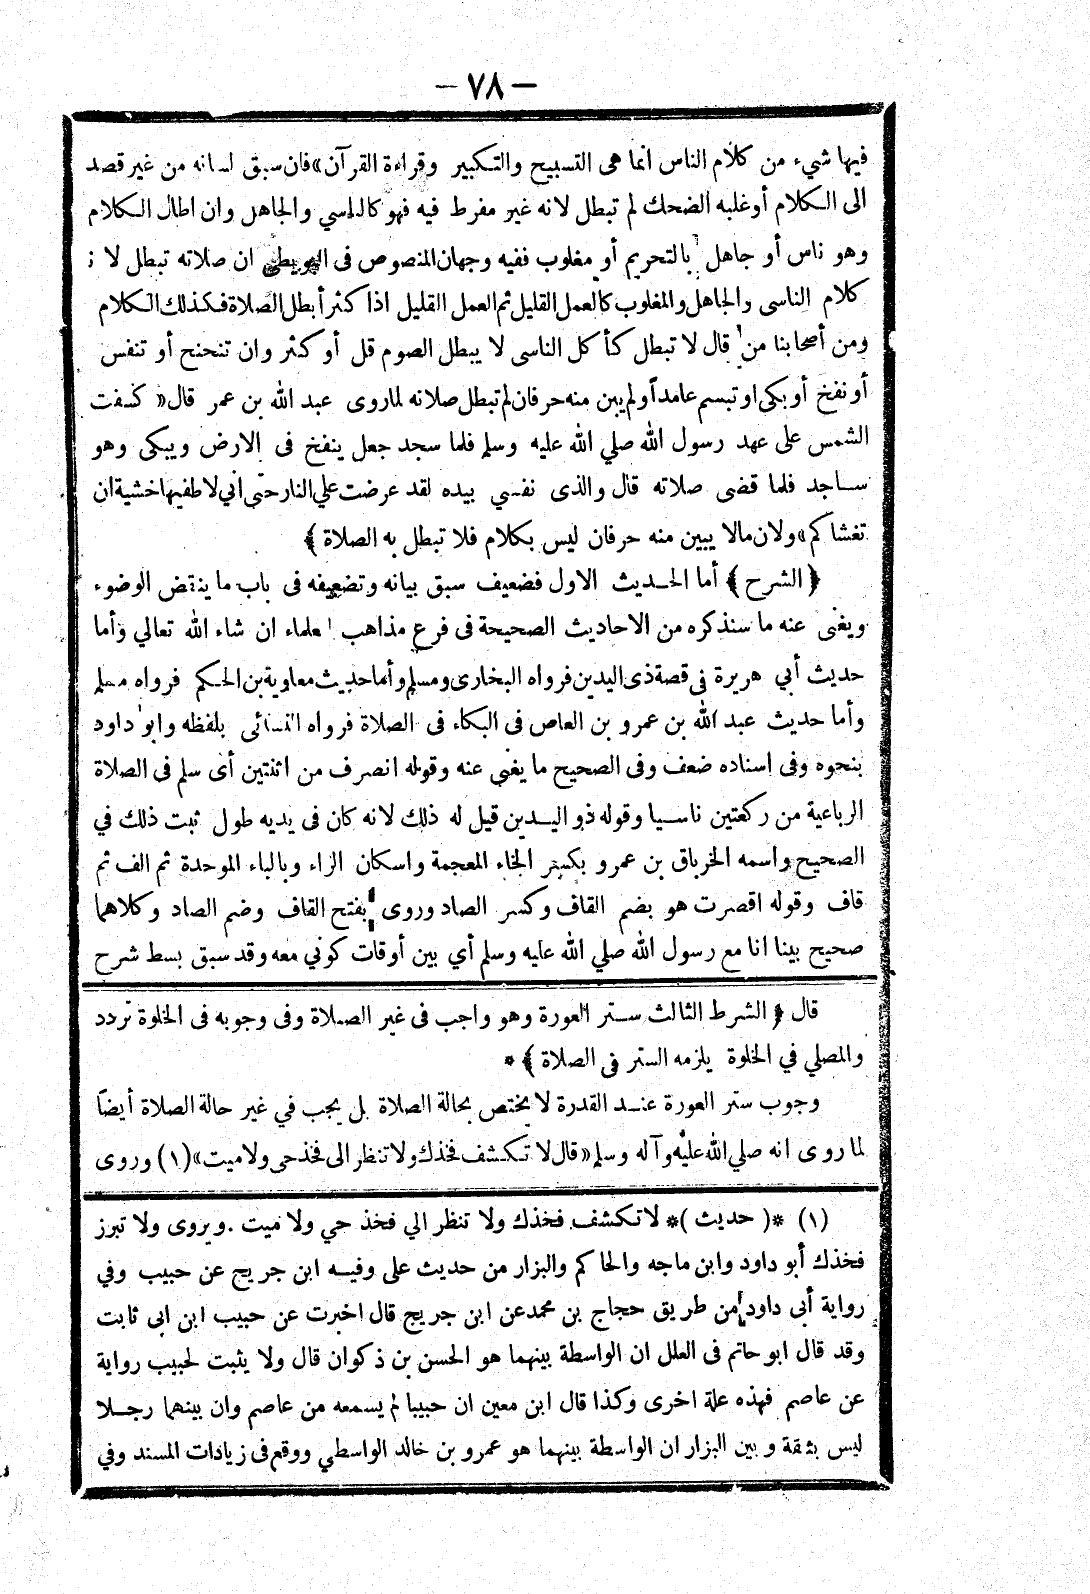 — ٧٨ —
فيها شيء من كلام الناس انما هى التسبيح والتكبير وقراءة القرآن» فان سبق لسانه من غير قصد
الى الكلام أو غلبه الضحك لم تبطل لانه غير مفرط فيه فهو كالناسي والجاهل وان اطال الكلام
وهو ناس أو جاهل بالتحريم أو مغلوب ففيه وجهان المنصوص فى البويطى ان صلاته تبطل لا ن
كلام الناسى والجاهل والمغلوب كالعمل القليل ثم العمل القليل اذا كثر أبطل الصلاة فكذلك الكلام
ومن أصحابنا من قال لا تبطل كأ كل الناسى لا يبطل الصوم قل أو كثر وان تنحنح أو تنفس
أو نفخ أو بكى او تبسم عامداً ولم يبن منه حرفان لم تبطل صلاته لما روى عبد الله بن عمر قال « كسفت
الشمس على عهد رسول الله صلي الله عليه وسلم فلما سجد جعل ينفخ فى الارض ويبكى وهو
ساجد فلما قضى صلاته قال والذى نفسي بيده لقد عرضت علي النار حتى انى لاطفيها خشية ان
تغشا كم» ولان مالا يبين منه حرفان ليس بكلام فلا تبطل به الصلاة ﴾
﴿ الشرح ﴾ أما الحديث الاول فضعيف سبق بيانه وتضعيفه فى باب ما ينقض الوضوء
ويغنى عنه ما سنذكره من الاحاديث الصحيحة فى فرع مذاهب العلماء ان شاء الله تعالي وأما
حديث أبي هريرة فى قصة ذى اليدين فرواه البخارى ومسلم وأما حديث معاوية بن الحكم فرواه مسلم
وأما حديث عبد الله بن عمرو بن العاص فى البكاء فى الصلاة فرواه النسائى بلفظه وابو داود
بنحوه وفى اسناده ضعف وفى الصحيح ما يغنى عنه وقوله انصرف من اثنتين أى سلم فى الصلاة
الرباعية من ركعتين ناسيا وقوله ذو اليدين قيل له ذلك لانه كان فى يديه طول ثبت ذلك في
الصحيح واسمه الخرباق بن عمرو بكسر الخاء المعجمة واسكان الراء وبالباء الموحدة ثم الف ثم
قاف وقوله اقصرت هو بضم القاف وكسر الصاد وروى بفتح القاف وضم الصاد وكلاهما
صحيح بينا انا مع رسول الله صلي الله عليه وسلم أي بين أوقات كوني معه وقد سبق بسط شرح
قال ﴿ الشرط الثالث ستر العورة وهو واجب فى غير الصلاة وفى وجوبه فى الخلوة تردد
والمصلي في الخلوة يلزمه الستر فى الصلاة ﴾ *
وجوب ستر العورة عند القدرة لا يختص بحالة الصلاة بل يجب في غير حالة الصلاة أيضاً
لما روى انه صلي الله عليه وآله وسلم « قال لا تكشف فخذك ولا تنظر الى فخذ حى ولا ميت » (١) وروى
(١) *( حديث )* لا تكشف فخذك ولا تنظر الي فخذ حي ولا ميت . ويروى ولا تبرز
فخذك أبو داود وابن ماجه والحا كم والبزار من حديث على وفيه ابن جريج عن حبيب وفي
رواية أبى داود من طريق حجاج بن محمد عن ابن جريج قال اخبرت عن حبيب ابن ابى ثابت
وقد قال ابو حاتم فى العلل ان الواسطة بينهما هو الحسن بن ذكوان قال ولا يثبت لحبيب رواية
عن عاصم فهذه علة اخرى وكذا قال ابن معين ان حبيبا لم يسمعه من عاصم وان بينهما رجلا
ليس بثقة و بين البزار ان الواسطة بينهما هو عمرو بن خالد الواسطي ووقع فى زيادات المسند وفي